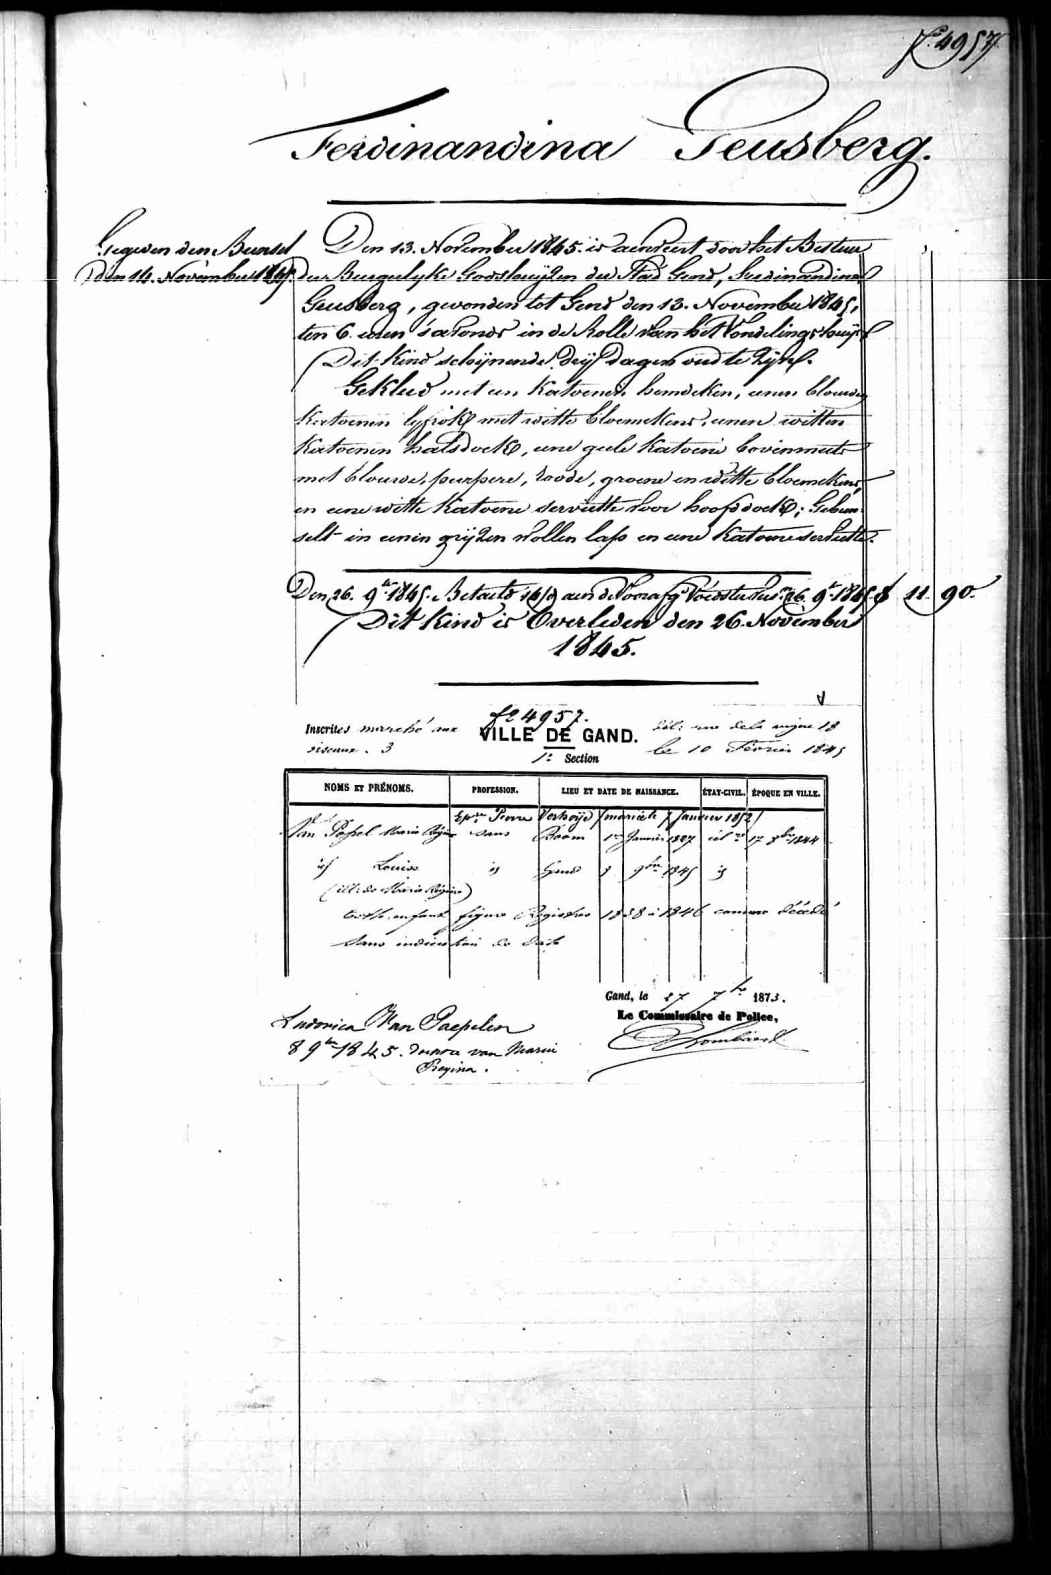 fo 4957
Ferdinandina Geusberg.
Gegeven den Bundel
Den 14. November 1845.
Den 13. November 1845. is aenveert door het Bestuur
der Burgelyke Godshuyzen der Stad Gend, Ferdinandina
Geusberg, gevonden tot Gend den 13. November 1845,
ten 6. uren s'avonds in de Rolle van het Vondelingshuys
Dit Kind schynende dry dagen oud te zyn.
Gekleed met een Katoenen hemdeken, eenen blouwen
Katoenen lyfrok met witte bloemekens, eenen witten
Katoenen halsdoek, eene geele Katoene bovenmuts
met blouwe, purpere, roode, groene en witte bloemekens,
en eene witte Katoene serviette voor hoofddoek; Gebun-
selt in eenen gryzen wollen laps en eene Katoene serviette.
Den 26. 9br 1845. Betaeld aen de Voedster 26. 9r 1845. f 11. 90.
Dit Kind is Overleden den 26. November
1845.
fo 4957.
Inscrites marché aux
oiseaux. 3
VILLE DE GAND.
1e Section
rue de la vigne 18
le 10 Février 1845
NOMS ET PRÉNOMS. PROFESSION. LIEU ET DATE DE NAISSANCE. ÉTAT-CIVIL. ÉPOQUE EN VILLE.
Epse Pierre (mariée le 7 Janvier 1852)
Van Marie Régine sans Boom 1er Janvier 1827 cél re 17 8bre 1844
id Louise id Gand 8 9bre 1845 id
(fille de Marie Régine)
cette enfant figure Registres 1838 à 1846 comme décédé
sans indication de date
Gand, le 27 7bre 1873.
Le Commissaire de Police,
Ludovica Van Paepelen
8 9bre 1845. dochter van Marie
Regina.